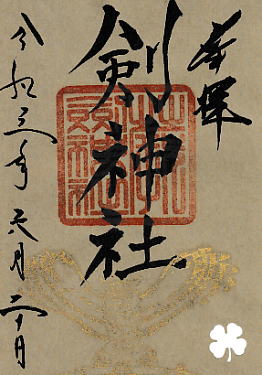 奉拝
剣神社
令和三年六月二十日